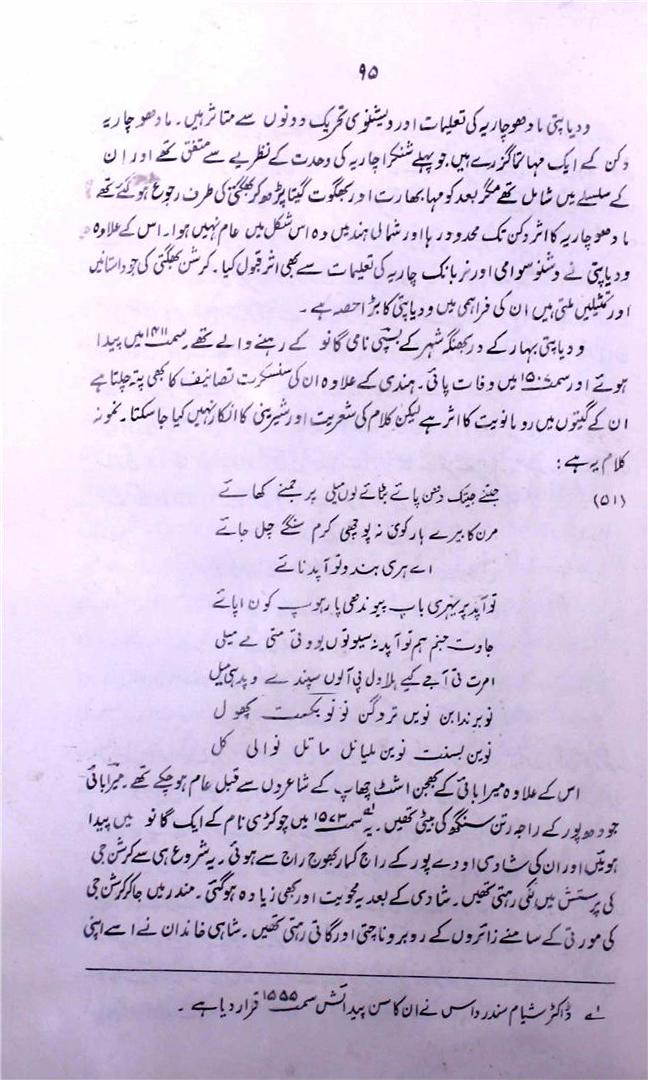 ۹۵
ودیاپتی مادھوچاریہ کی تعلیمات اور ویشنوی تحریک دونوں سے متاثر ہیں۔ مادھوچاریہ
دکن کے ایک مہاتما گزرے ہیں، جو پہلے شنکراچاریہ کی وحدت کے نظریے سے متفق تھے اور ان
کے سلسلے میں شامل تھے مگر بعد کو مہابھارت اور بھگوت گیتا پڑھ کر بھگتی کی طرف رجوع ہو گئے تھے
مادھوچاریہ کا اثر دکن تک محدود رہا اور شمالی ہند میں وہ اس شکل میں عام نہیں ہوا۔ اس کے علاوہ
ودیاپتی نے وشنو سوامی اور نربانک چاریہ کی تعلیمات سے بھی اثر قبول کیا۔ کرشن بھگتی کی جو داستانیں
اور تمثیلیں ملتی ہیں ان کی فراہمی میں ودیاپتی کا بڑا حصہ ہے۔
ودیاپتی بہار کے دربھنگہ شہر کے بسپی نامی گانو کے رہنے والے تھے۔ سمت ۱۴۱۱ میں پیدا
ہوئے اور سمت ۱۵۰۷ میں وفات پائی۔ ہندی کے علاوہ ان کی سنسکرت تصانیف کا بھی پتہ چلتا ہے
ان کے گیتوں میں رومانویت کا اثر ہے لیکن کلام کی شعریت اور شیرینی کا انکار نہیں کیا جا سکتا۔ نمونہ
کلام یہ ہے:
(۵۱) جتنے جیتک دھن پائے بٹائے لوں میلی پر جمنے کھائے
مرن کا بیرے ہار کوی نہ پوچھی کرم سنگے چل جائے
اے ہری بندو تو آپد نائے
تو آپد پر یہری باپ پیوندھی پار ہوب کون اپائے
جاوت جنم ہم تو آپد نہ سیلوتوں یووتی متی مے میلی
امرت تی آجے کیے ہلاول پی آلوں سپندے وپدہی میل
نو برندابن نویں تروگن نو نو بکست پھول
نوین بسنت نوین ملیانل ماتل نوالی کل
اس کے علاوہ میرابائی کے بھجن اشٹ چھاپ کے شاعروں سے قبل عام ہو چکے تھے۔ میرابائی
جودھپور کے راجہ رتن سنگھ کی بیٹی تھیں۔ یہ سمت ۱۵۷۳ لے میں چوکڑی نام کے ایک گانو میں پیدا
ہوئیں اور ان کی شادی اودے پور کے راج کمار بھوج راج سے ہوئی۔ یہ شروع ہی سے کرشن جی
کی پرستش میں لگی رہتی تھیں۔ شادی کے بعد یہ محویت اور بھی زیادہ ہو گئی۔ مندر میں جا کر کرشن جی
کی مورتی کے سامنے زائروں کے روبرو ناچتی اور گاتی رہتی تھیں۔ شاہی خاندان نے اسے اپنی
لے ڈاکٹر شیام سندر داس نے ان کا سن پیدائش سمت ۱۵۵۵ قرار دیا ہے۔